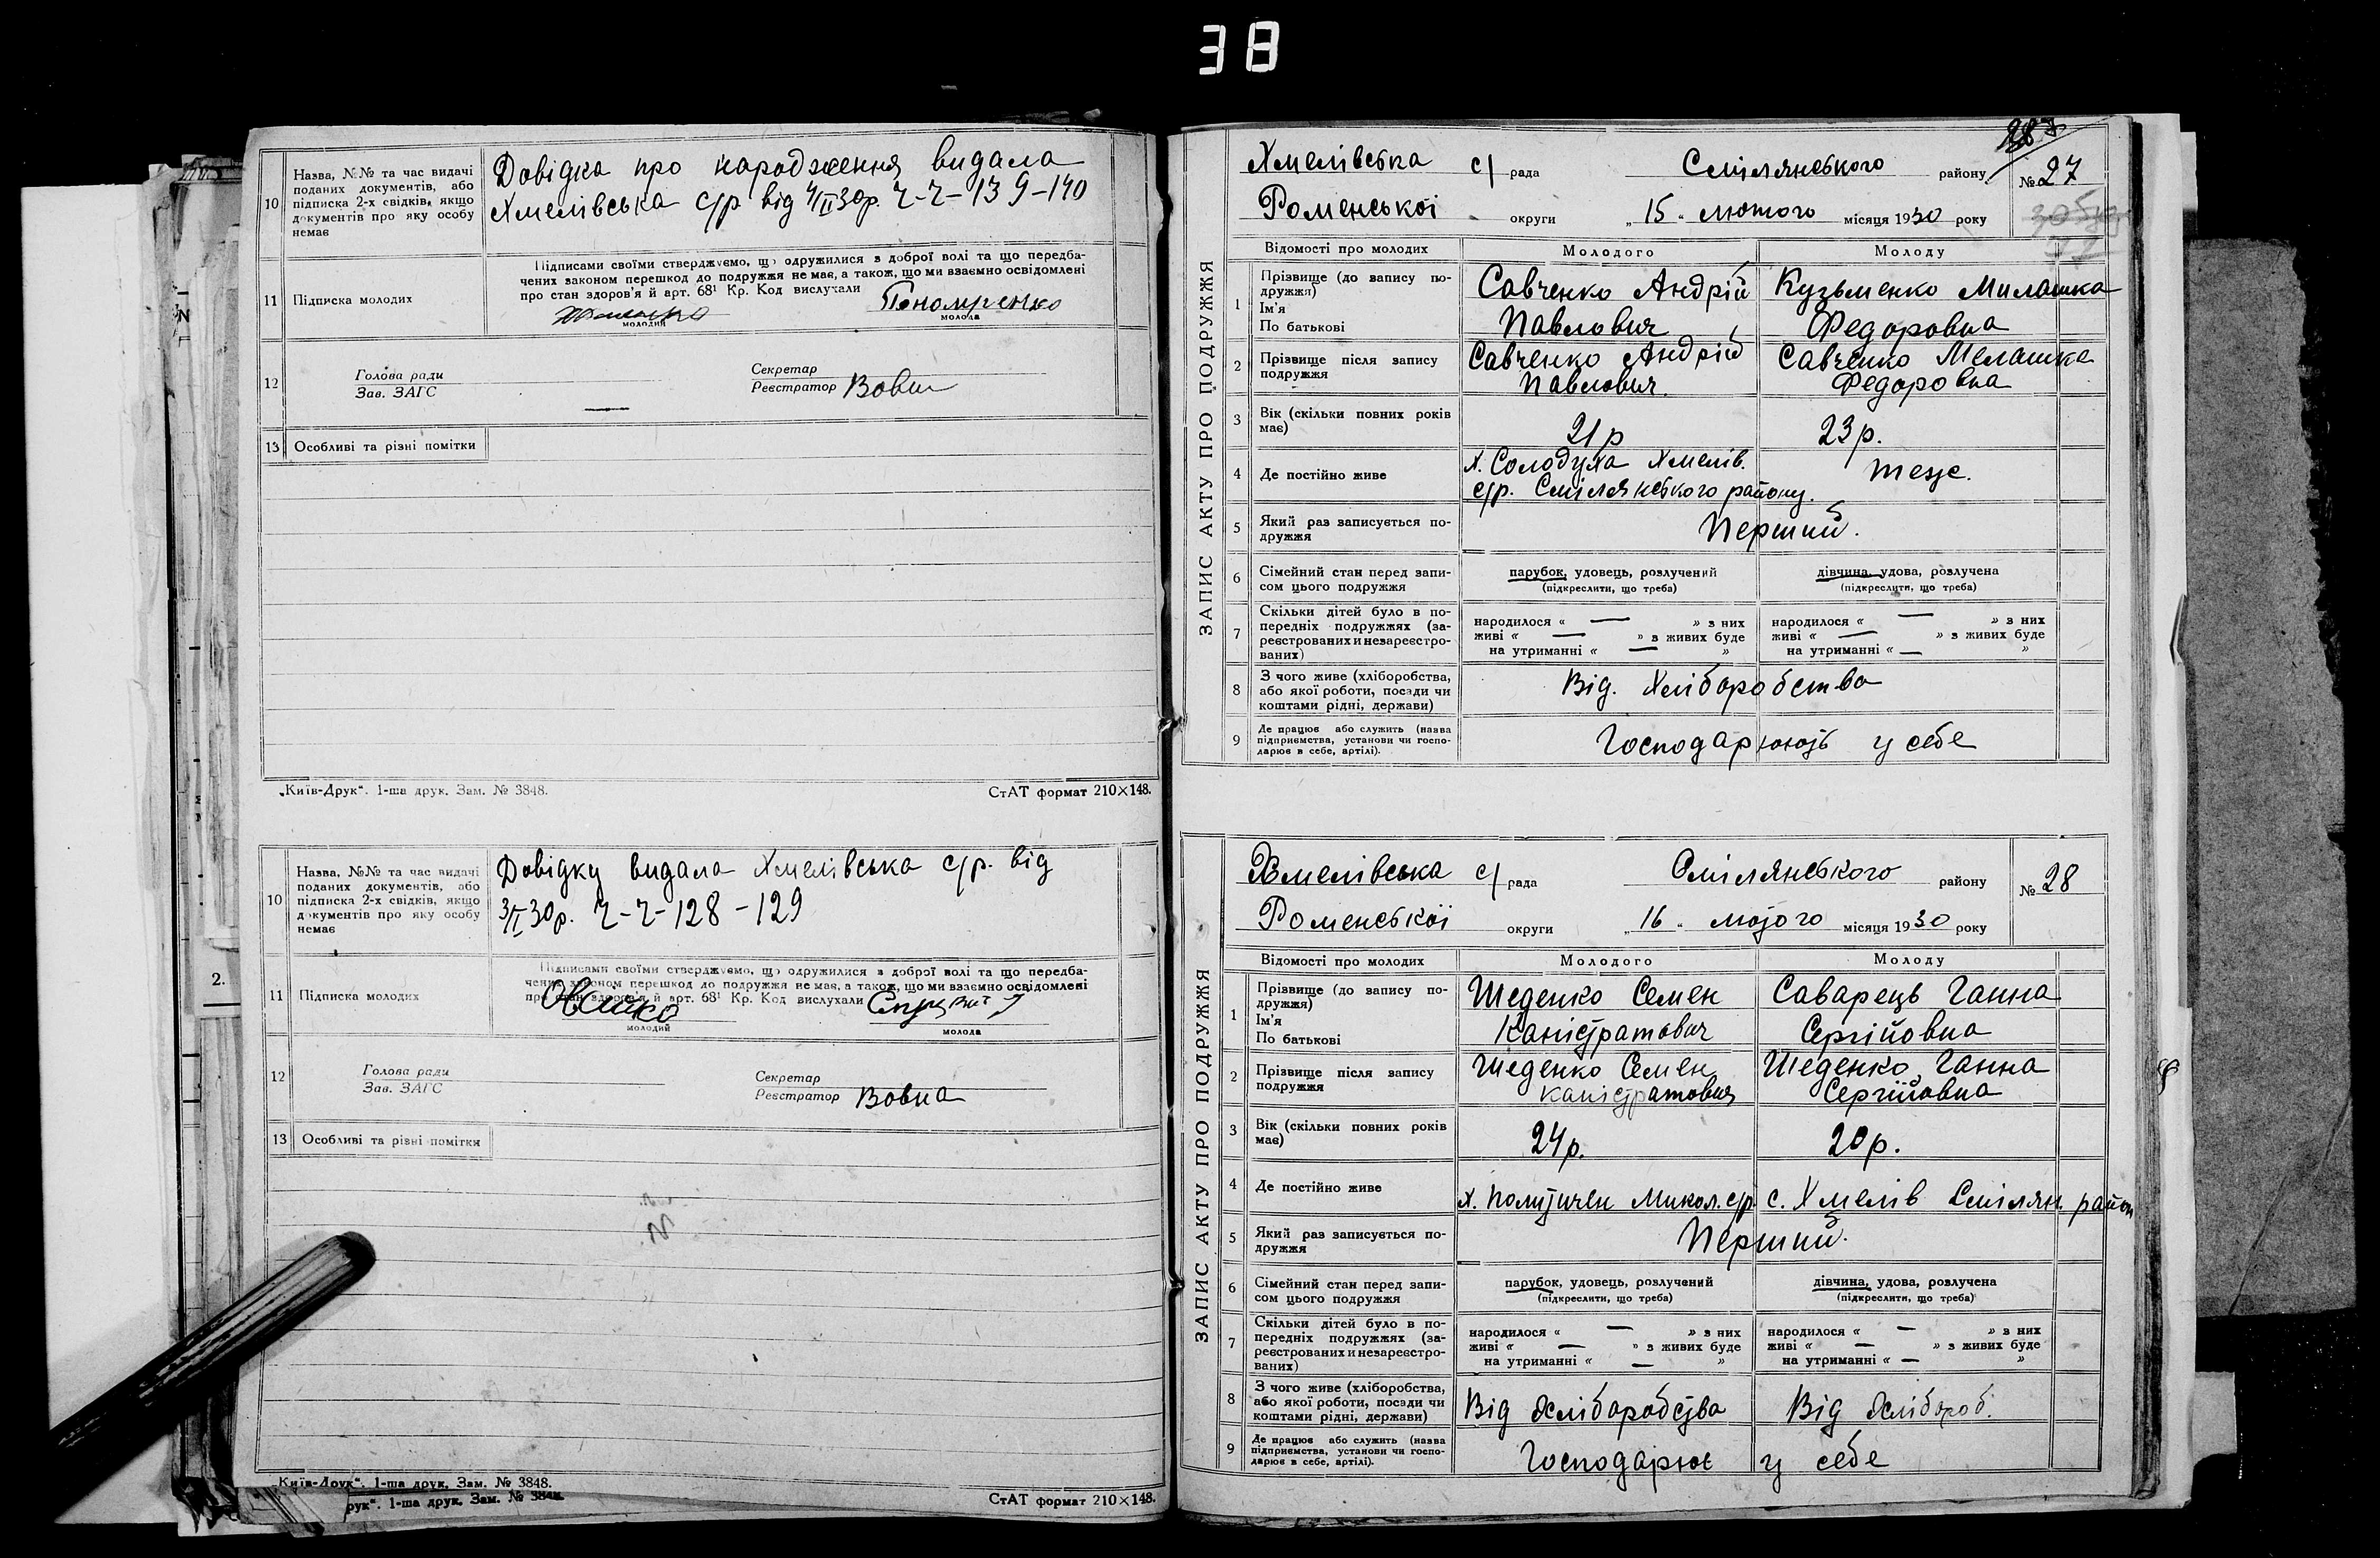 38
10
Назва, №№ та час видачі
поданих документів, або
підписка 2-х свідків, якщо
документів про яку особу
немає
Довідка про народження видала
Хмелівська с/р від 4/II 30р. Ч-Ч-139-140
11
Підписка молодих
Підписами своїми стверджуємо, що одружилися з доброї волі та що передба-
чених законом перешкод до подружжя немає, а також, що ми взаємно освідомлені
про стан здоров'я й арт. 68¹ Кр. Код вислухали
Пономаренко
молодий
молода
12
Голова ради
Зав. ЗАГС
Секретар
Реєстратор Вовна
13
Особливі та різні помітки
„Київ-Друк“. 1-ша друк. Зам. № 3848.
СтАТ формат 210×148.
10
Назва, №№ та час видачі
поданих документів, або
підписка 2-х свідків, якщо
документів про яку особу
немає
Довідку видала Хмелівська с/р. від
3/II 30р. Ч-Ч-128-129
11
Підписка молодих
Підписами своїми стверджуємо, що одружилися з доброї волі та що передба-
чених законом перешкод до подружжя не має, а також, що ми взаємно освідомлені
про стан здоров'я й арт. 68¹ Кр. Код вислухали
молодий
молода
12
Голова ради
Зав. ЗАГС
Секретар
Реєстратор Вовна
13
Особливі та різні помітки
Київ-Друк“. 1-ша друк. Зам. № 3848.
рук“. 1-ша друк. Зам. № 3848.
СтАТ формат 210×148.
2.
ЗАПИС АКТУ ПРО ПОДРУЖЖЯ
Хмелівська с/рада Смілянського району № 27
Роменської округи „15“ лютого місяця 1930 року
Відомості про молодих
Молодого
Молоду
1
Прізвище (до запису по-
дружжя)
Ім'я
По батькові
Савченко Андрій
Павлович
Кузьменко Милашка
Федоровна
2
Прізвище після запису
подружжя
Савченко Андрій
Павлович.
Савченко Мелашка
Федоровна
3
Вік (скільки повних років
має)
21р
23р.
4
Де постійно живе
х. Солодуха Хмелів.
с/р. Смілянського району.
теже.
5
Який раз записується по-
дружжя
Перший.
6
Сімейний стан перед запи-
сом цього подружжя
парубок, удовець, розлучений
(підкреслити, що треба)
дівчина, удова, розлучена
(підкреслити, що треба)
7
Скільки дітей було в по-
передніх подружжях (за-
реєстрованих и незареєстро-
ваних)
народилося « — » з них
живі « — » з живих буде
на утриманні « — »
народилося « — » з них
живі « — » з живих буде
на утриманні « — »
8
З чого живе (хліборобства,
або якої роботи, посади чи
коштами рідні, держави)
Від. Хліборобства
9
Де працює або служить (назва
підприємства, установи чи госпо-
дарює в себе, артілі).
Господарюють у себе
ЗАПИС АКТУ ПРО ПОДРУЖЖЯ
Хмелівська с/рада Смілянського району № 28
Роменської округи „16“ лютого місяця 1930 року
Відомості про молодих
Молодого
Молоду
1
Прізвище (до запису по-
дружжя)
Ім'я
По батькові
Шеденко Семен
Каністратович
Саварець Ганна
Сергійовна
2
Прізвище після запису
подружжя
Шеденко Семен
Каністратович
Шеденко Ганна
Сергійовна
3
Вік (скільки повних років
має)
24р.
20р.
4
Де постійно живе
Микол. с/р.
с. Хмелів Смілян. район
5
Який раз записується по-
дружжя
Перший.
6
Сімейний стан перед запи-
сом цього подружжя
парубок, удовець, розлучений
(підкреслити, що треба)
дівчина, удова, розлучена
(підкреслити, що треба)
7
Скільки дітей було в по-
передніх подружжях (за-
реєстрованих и незареєстро-
ваних)
народилося « — » з них
живі « — » з живих буде
на утриманні « — »
народилося « — » з них
живі « — » з живих буде
на утриманні « — »
8
З чого живе (хліборобства,
або якої роботи, посади чи
коштами рідні, держави)
Від хліборобства
Від хлібороб.
9
Де працює або служить (назва
підприємства, установи чи госпо-
дарює в себе, артілі).
Господарює у себе